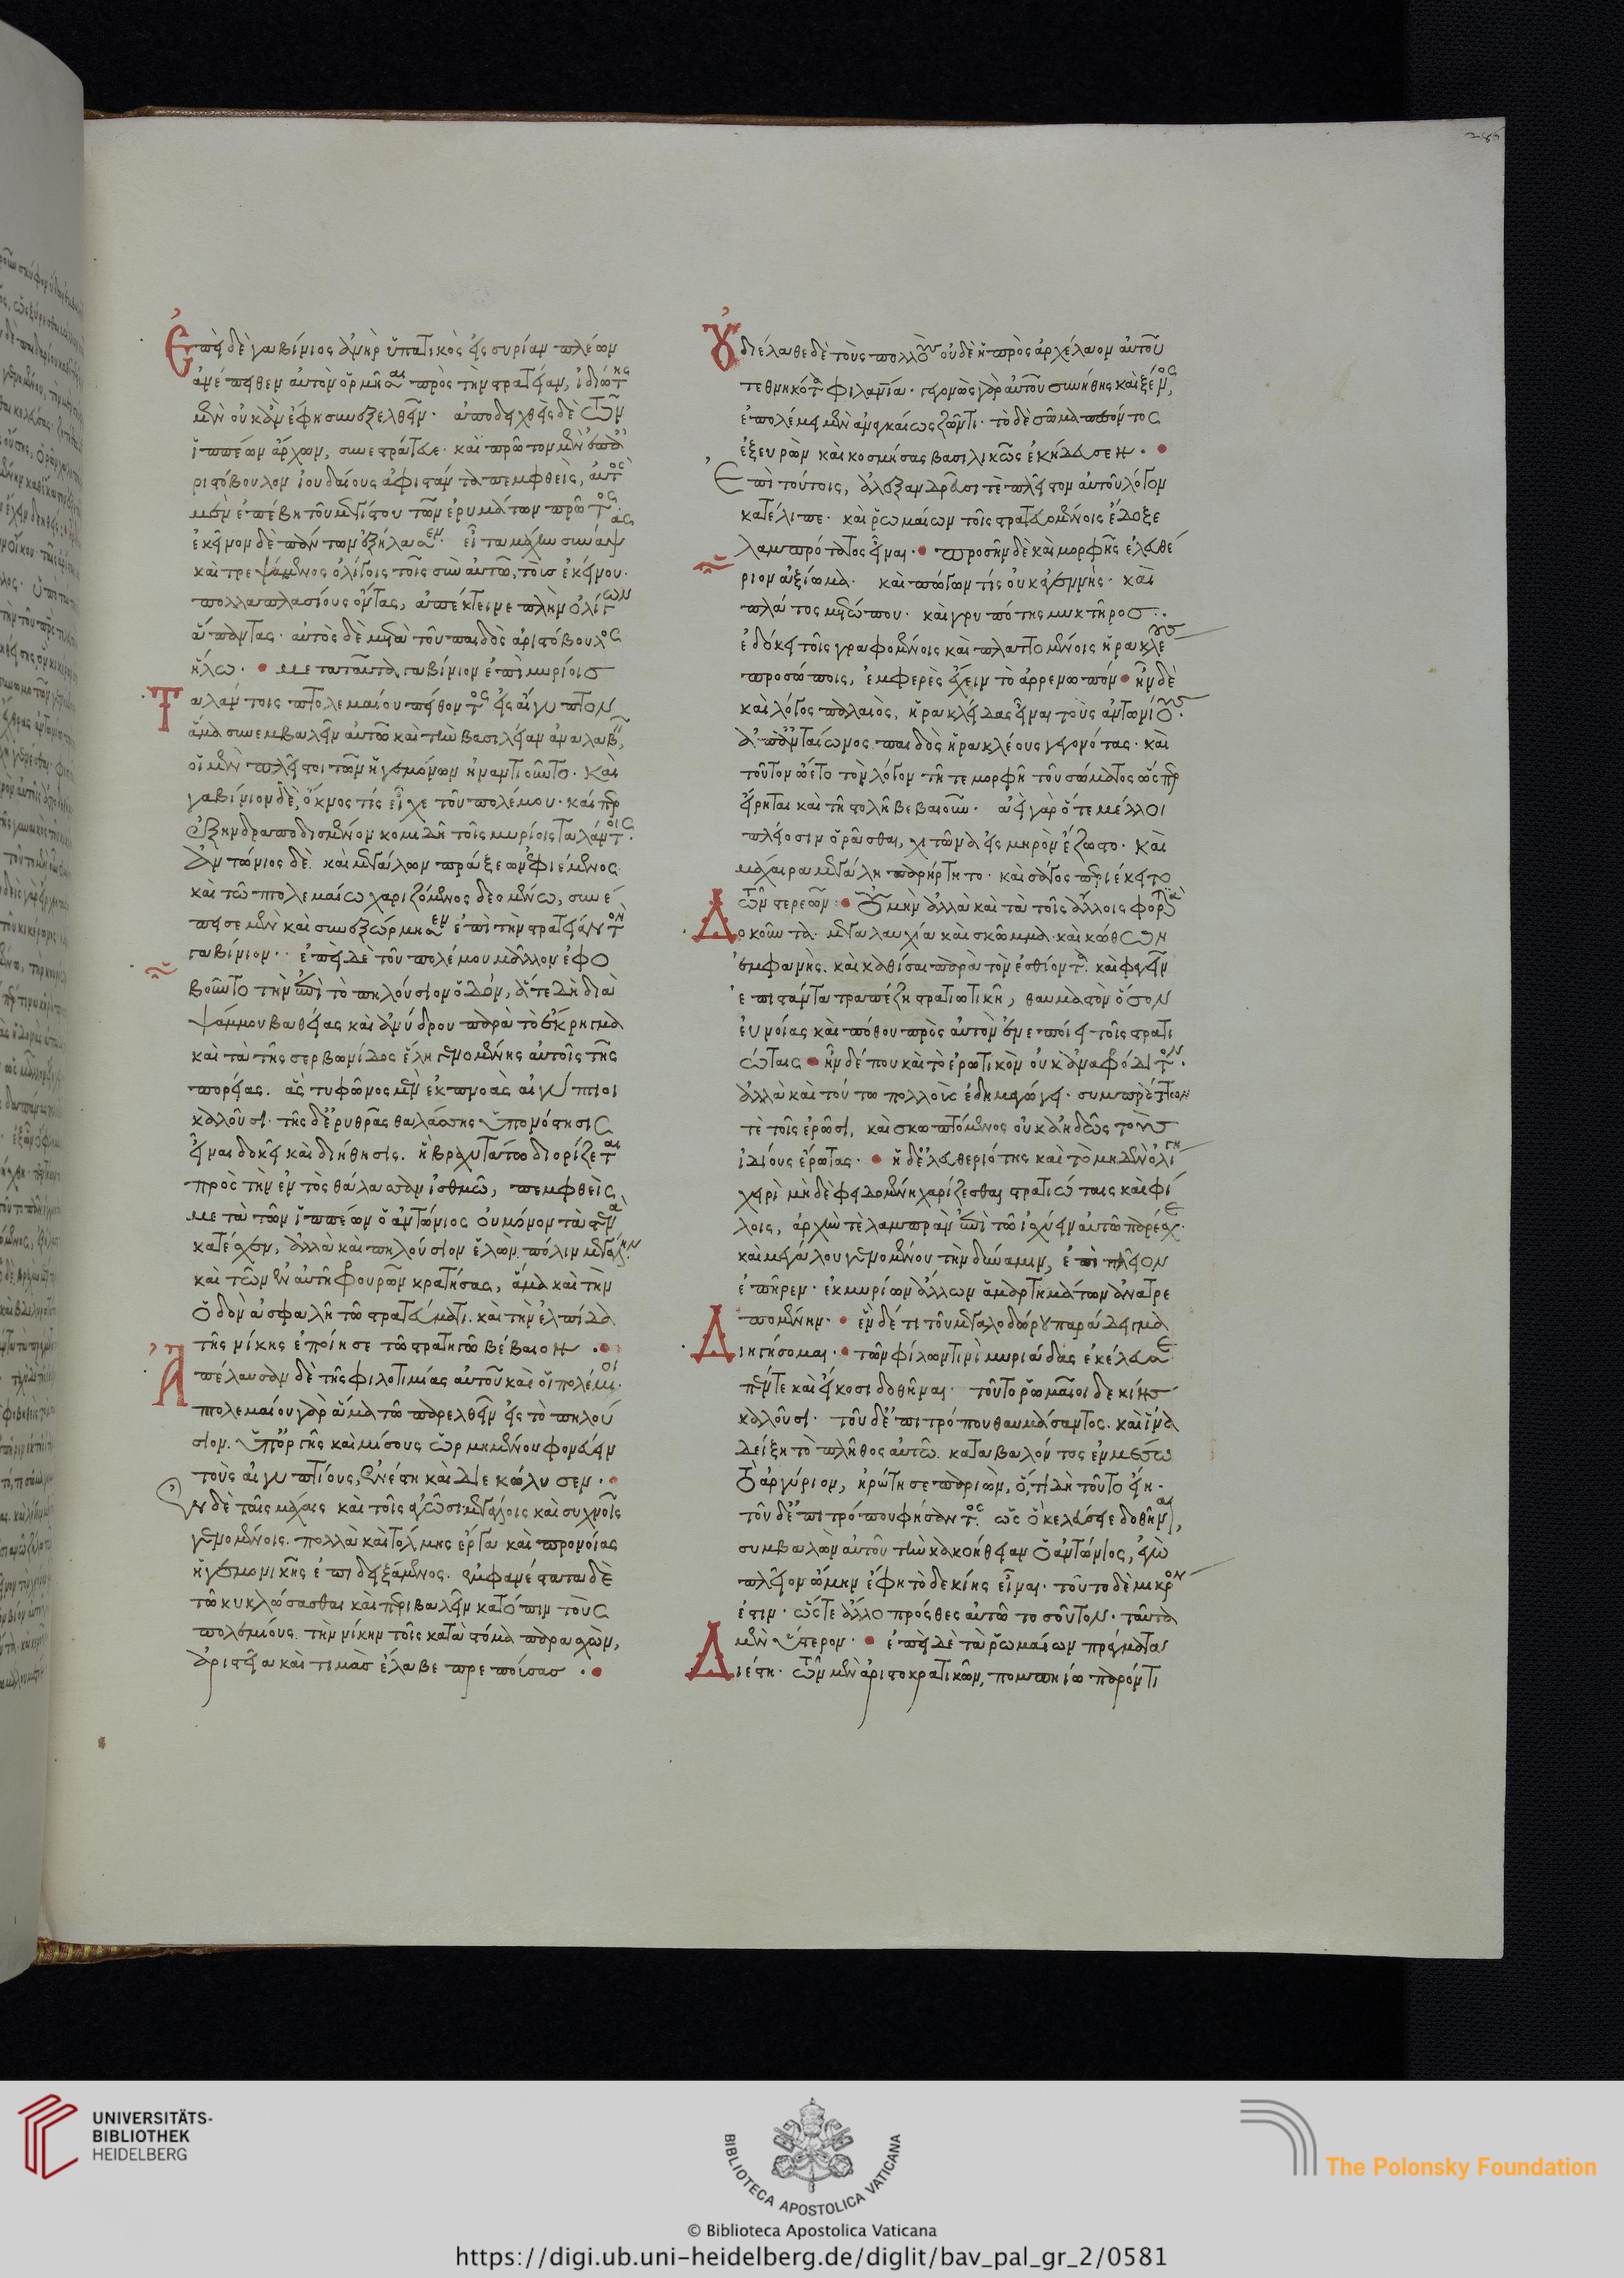 Ἐπεὶ δὲ γαβίνιος ἀνὴρ ὑπατικὸς εἰς συρίαν πλέων
ἀνέπειθεν αὐτὸν ὁρμῆσαι πρὸς τὴν στρατείαν, ἰδιώτης
μὲν οὐκ ἂν ἔφη συνεξελθεῖν· ἀποδειχθεὶς δὲ τῶν
ἱππέων ἄρχων, συνεστράτευε· καὶ πρῶτον μὲν ἐπ' ἀ
ριστόβουλον ἰουδαίους ἀφιστάντα πεμφθεὶς, αὐτὸς
μὲν ἐπέβη τοῦ μεγίστου τῶν ἐρυμάτων πρῶτος
ἐκεῖνον δὲ πάντων ἐξήλασεν· εἶτα μάχην συνάψας
καὶ τρεψάμενος ὀλίγοις τοῖς σὺν αὐτῷ, τοὺς ἐκείνου·
πολλαπλασίους ὄντας, ἀπέκτεινε πλὴν ὀλίγων
ἅπαντας· αὐτὸς δὲ μετὰ τοῦ παιδὸς ἀριστόβουλος
ἥλω· μετὰ ταῦτα γαβίνιον ἐπὶ μυρίοις
Ταλάντοις πτολεμαίου πείθοντος εἰς αἴγυπτον
ἅμα συνεμβαλεῖν αὐτῷ καὶ τὴν βασιλείαν ἀναλαβεῖν,
οἱ μὲν πλεῖστοι τῶν ἡγεμόνων ἠναντιοῦντο· καὶ
γαβίνιον δὲ, ὄκνος τίς εἶχε τοῦ πολέμου· καίπερ
ἐξηνδραποδισμένον κομιδῆ τοῖς μυρίοις ταλάντοις·
ἀντώνιος δὲ. καὶ μεγάλων πράξεων ἐφιέμενος
καὶ τῷ πτολεμαίῳ χαριζόμενος δεομένῳ, συνέ
πεισε μὲν καὶ συνεξώρμησεν ἐπὶ τὴν στρατείαν τὸν
γαβίνιον· ἐπεὶ δὲ τοῦ πολέμου μᾶλλον ἐφο
βοῦντο τὴν ἐπὶ τὸ πηλούσιον ὁδὸν, ἅτε δὴ διὰ
ψάμμου βαθείας καὶ ἀνύδρου παρὰ τὸ ἔκρηγμα
καὶ τὰ τῆς σερβωνίδος ἕλη γενομένης αὐτοῖς τῆς
πορείας. ἃς τυφῶνος μὲν ἐκπνοὰς αἰγύπτιοι
καλοῦσι· τῆς δ' ἐρυθρᾶς θαλάσσης ὑπονόστησις
εἶναι δοκεῖ καὶ διήθησις. ἧ βραχυτάτῳ διορίζεται
πρὸς τὴν ἐντὸς θάλασσαν ἰσθμῷ, πεμφθεὶς
μετὰ τῶν ἱππέων ὁ ἀντώνιος οὐ μόνον τὰ στενὰ
κατέσχεν, ἀλλὰ καὶ πηλούσιον ἑλὼν πόλιν μεγάλην
καὶ τῶν ἐν αὐτῇ φρουρῶν κρατήσας, ἅμα καὶ τὴν
ὁδὸν ἀσφαλῆ τῷ στρατεύματι· καὶ τὴν ἐλπίδα
τῆς νίκης ἐποίησε τῷ στρατηγῷ βέβαιον·
Ἀπέλαυσαν δὲ τῆς φιλοτιμίας αὐτοῦ καὶ οἱ πολέμιοι·
πτολεμαίου γὰρ ἅμα τῷ παρελθεῖν εἰς τὸ πηλού
σιον. ὑπ' ὀργῆς καὶ μίσους ὡρμημένου φονεύειν
τοὺς αἰγυπτίους, ἐνέστη καὶ διεκώλυσεν·
Ἐν δὲ ταῖς μάχαις καὶ τοῖς ἀγῶσι μεγάλοις καὶ συχνοῖς
γενομένοις· πολλὰ καὶ τόλμης ἔργα καὶ προνοίας
ἡγεμονικῆς ἐπιδειξάμενος· ἐμφανέστατα δὲ
τῷ κυκλώσασθαι καὶ περιβαλεῖν κατόπιν τοὺς
πολεμίους. τὴν νίκην τοῖς κατὰ στόμα παρασχὼν,
ἀριστεῖα καὶ τιμὰς ἔλαβε πρεπούσας·
Οὐ διέλαθε δὲ τοὺς πολλοὺς οὐδὲ ἡ πρὸς ἀρχέλαον αὐτοῦ
τεθνηκότα φιλανπία· γεγονὼς γὰρ αὐτοῦ συνήθης καὶ ξένος,
ἐπολέμει μὲν ἀναγκαίως ζῶντι· τὸ δὲ σῶμα πεσόντος
ἐξευρὼν καὶ κοσμήσας βασιλικῶς ἐκήδευσεν·
Ἐπὶ τούτοις, ἀλεξανδρεῦσί τε πλεῖστον αὑτοῦ λόγον
κατέλιπε· καὶ ῥωμαίων τοῖς στρατευομένοις ἔδοξε
λαμπρότατος εἶναι· προσῆν δὲ καὶ μορφῆς ἐλευθέ
ριον ἀξίωμα· καὶ πώγων τίς οὐκ ἀγεννής· καὶ
πλάτος μετώπου· καὶ γρυπότης μυκτῆρος·
ἐδόκει τοῖς γραφομένοις καὶ πλαττομένοις ἡρακλέους
προσώποις, ἐμφερὲς ἔχειν τὸ ἀρρενωπόν· ἦν δὲ
καὶ λόγος παλαιὸς, ἡρακλείδας εἶναι τοὺς ἀντωνίους·
ἀπ' ἄνταίωνος παιδὸς ἡρακλέους γεγονότας· καὶ
τοῦτον ᾤετο τὸν λόγον τῇ τε μορφῇ τοῦ σώματος ὥσπερ
εἴρηται καὶ τῇ στολῇ βεβαιοῦν· ἀεὶ γὰρ ὅτε μέλλοι
πλείοσιν ὁρᾶσθαι, χιτῶνα εἰς μηρὸν ἔζωστο· καὶ
μάχαιρα μεγάλη παρήρτητο· καὶ σάγος περιέκειτο
τῶν στερεῶν· Οὐ μὴν ἀλλὰ καὶ τὰ τοῖς ἄλλοις φορτικὰ
Δοκοῦντα· μεγαλαυχία καὶ σκῶμμα καὶ κώθων
ἐμφανὴς. καὶ καθίσαι παρὰ τὸν ἐσθίοντα. καὶ φαγεῖν
ἐπιστάντα τραπέζῃ στρατιωτικῇ, θαυμαστὸν ὅσον
εὐνοίας καὶ πόθου πρὸς αὐτὸν ἐνεποίει τοῖς στρατι
ώταις· ἦν δέ που καὶ τὸ ἐρωτικὸν οὐκ ἀναφρόδιτον·
ἀλλὰ καὶ τούτῳ πολλοὺς ἐδημαγώγει· συμπράττων
τὲ τοῖς ἐρῶσι, καὶ σκωπτόμενος οὐκ ἀηδῶς τοὺς
ἰδίους ἔρωτας· ἡ δ' ἐλευθεριότης καὶ τὸ μηδὲν ὀλίγῃ
χειρὶ μηδὲ φειδομένῃ χαρίζεσθαι στρατιώταις καὶ φί
λοις, ἀρχήν τε λαμπρὰν ἐπὶ τὸ ἰσχύειν αὐτῷ παρέσχε·
καὶ μεγάλου γενομένου τὴν δύναμιν, ἐπὶ πλεῖον
ἐπῆρεν· ἐκ μυρίων ἄλλων ἁμαρτημάτων ἀνατρε
πομένην· ἓν δέ τι τοῦ μεγαλοδώρου παράδειγμα
Διηγήσομαι· τῶν φίλων τινὶ μυριάδας ἐκέλευσε
πέντε καὶ εἴκοσι δοθῆναι· τοῦτο ῥωμαῖοι δεκίης
καλοῦσι· τοῦ δ' ἐπιτρόπου θαυμάσαντος. καὶ ἵνα
δείξῃ τὸ πλῆθος αὐτῷ· καταβαλόντος ἐν μέσῳ
τὸ ἀργύριον, ἠρώτησε παριὼν, ὅ,τι δὴ τοῦτο εἴη·
τοῦ δ' ἐπιτρόπου φήσαντος ὡς ὃ κελεύσειε δοθῆναι,
συμβαλὼν αὐτοῦ τὴν κακοήθειαν ὁ ἀντώνιος, ἐγὼ
πλεῖον ᾤμην ἔφη τὸ δεκίης εἶναι· τοῦτο δὲ μικρόν
ἐστιν· ὥστε ἄλλο πρόσθες αὐτῷ τοσοῦτον· ταῦτα
μὲν ὕστερον· ἐπεὶ δὲ τὰ ῥωμαίων πράγματα
Διέστη· τῶν μὲν ἀριστοκρατικῶν, πομπηίῳ παρόντι
UNIVERSITÄTS-
BIBLIOTHEK
HEIDELBERG
BIBLIOTECA APOSTOLICA VATICANA
The Polonsky Foundation
© Biblioteca Apostolica Vaticana
https://digi.ub.uni-heidelberg.de/diglit/bav_pal_gr_2/0581